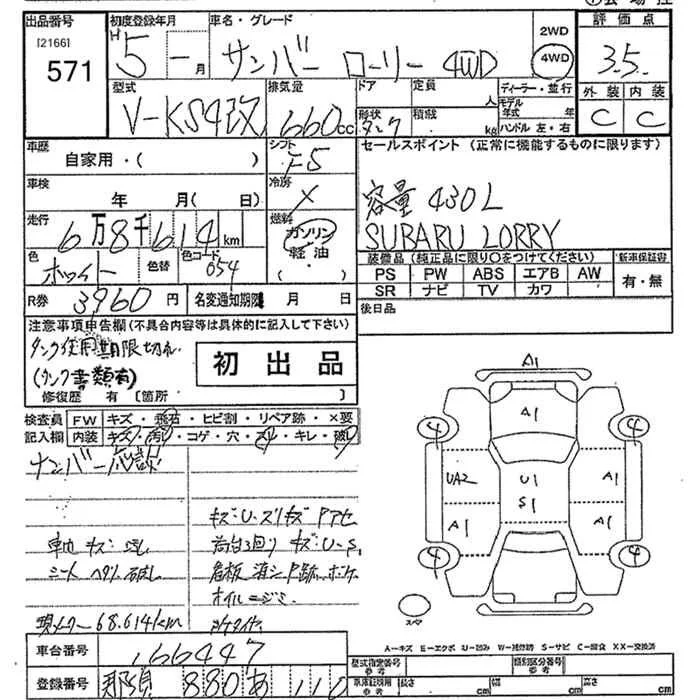 出品番号
[2166]
571
初度登録年月
H 5 年 - 月
車名・グレード
サンバー ローリー 4WD
2WD
4WD
評価点
3.5
外装 内装
C C
型式
V-KS4改
排気量
660cc
ドア
形状
タンク
定員
人
積載
kg
ディーラー・並行
モデル年式 年
ハンドル 左・右
車歴
自家用・( )
シフト
F5
車検
年 月( 日)
冷房
×
走行
6万8千614km
燃料
ガソリン
軽油
( ・ )
色
ホワイト
色替
色コード
054
R券
3960円
名変通知期限 月 日
セールスポイント (正常に機能するものに限ります)
容量 430L
SUBARU LORRY
装備品 (純正品に限り○をつけてください)
PS PW ABS エアB AW
SR ナビ TV カワ
新車保証書
有・無
後日品
注意事項申告欄(不具合内容等は具体的に記入して下さい)
タンク使用期限切れ
(タンク書類有)
初出品
修復歴 有 [箇所 ]
検査員記入欄
FW キズ・飛石・ヒビ割・リペア跡・×要
内装 キズ・汚れ・コゲ・穴・スレ・キレ・破れ
キズU・スリキズ
荷台3回り キズ:U・S
現メーター68.614km
車台番号
166447
登録番号
那須 880 あ 110
A1
A1
4
4
UA2
U1
S1
A1
A1
A1
4
4
スペア
A-キズ E-エクボ U-凹み W-補修跡 S-サビ C-腐食 XX-交換済
型式指定番号 参考
類別区分番号 参考
車庫証明用 参考
長さ cm
幅 cm
高さ cm